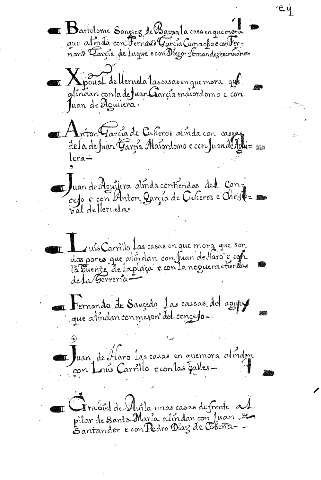 Bartolome Sanchez de Baega la casa en que mora
que alinda con Fernando Garcia Camacho e con Fer-
nand Garcia de Luque e con Diego
Xpoual de Ueruela las casas en que mora que
alindan con la de Juan Garcia maiordomo e con
Juan de Aguilera.
Anton Garcia de Cueros alinda con casas
de la de Juan Garcia Maiordomo e con Juan de Agui-
lera—
Juan de Aguilera alinda con tiendas del Con-
cejo e con Anton Garcia de e
ual de Ueruela
Luis Carrillo las casas en que mora que son
dos pares que alindan con Juan de Haro e con
la fuente de la plaça e con la
de la
Fernando de Saucedo las casas del
que alindan con meson del concejo—
Juan de Haro las casas en que mora alindan
con Luis Carrillo e con las calles—
Grauiel de Auila unas casas de frente al
pilar de Santa Maria alindan con Juan
Santander e con Pedro Diaz de